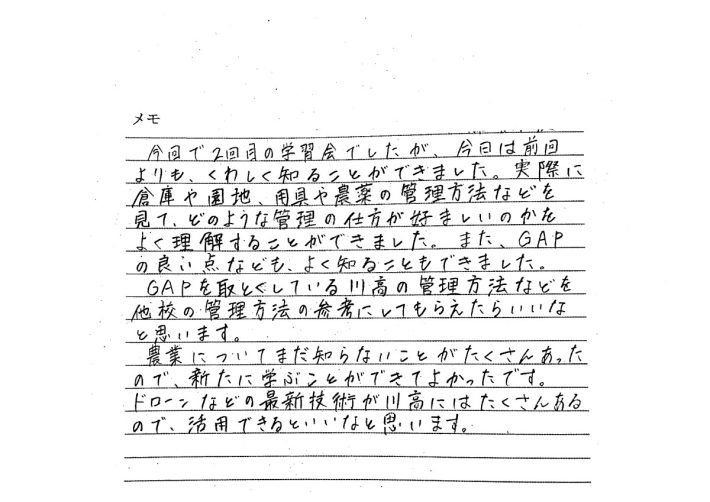 メモ
今回で2回目の学習会でしたが、今日は前回
よりも、くわしく知ることができました。実際に
倉庫や園地、用具や農薬の管理方法などを
見て、どのような管理の仕方が好ましいのかを
よく理解することができました。また、GAP
の良い点なども、よく知ることもできました。
GAPを取とくしている川高の管理方法などを
他校の管理方法の参考にしてもらえたらいいな
と思います。
農業についてまだ知らないことがたくさんあった
ので、新たに学ぶことができてよかったです。
ドローンなどの最新技術が川高にはたくさんある
ので、活用できるといいなと思います。